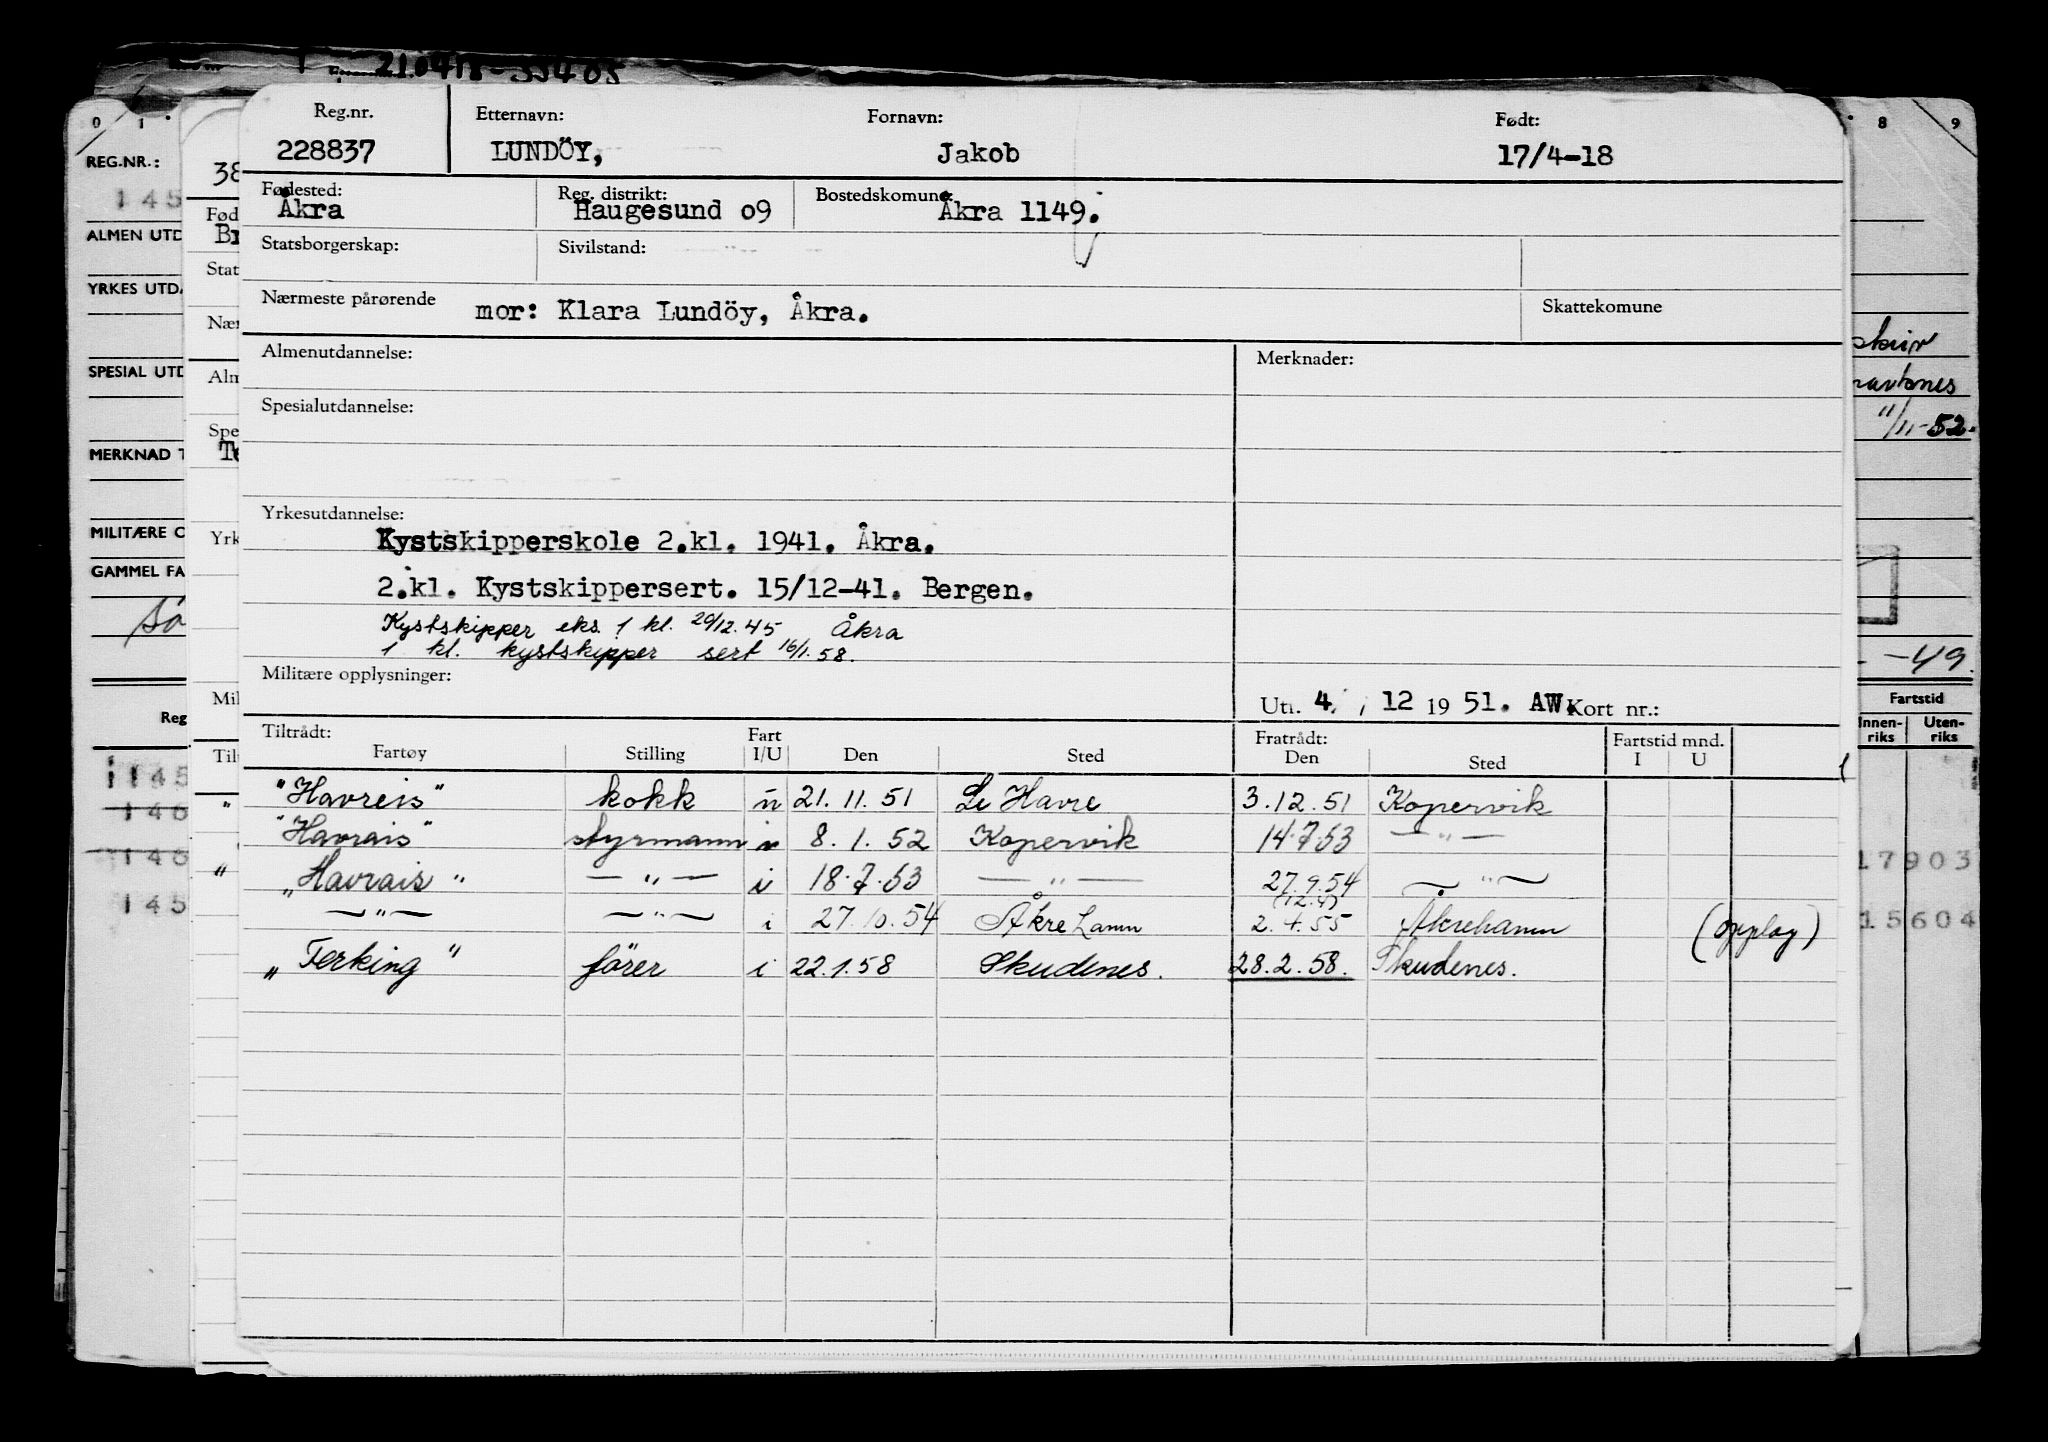 210418-
0 1 8 9
REG.NR.:
145
ALMEN UTD
YRKES UTD
SPESIAL UTD
MERKNAD T
MILITÆRE O
GAMMEL FA
Sø
Reg
1145
146
146
145
38
Fød
Br
Stat
Nær
Alm
Spe
Te
Yrk
Mil
Til
Reg.nr. Etternavn: Fornavn: Født:
228837 LUNDÖY, Jakob 17/4-18
Fødested: Reg. distrikt: Bostedskomune
Åkra Haugesund o9 Åkra 1149.
Statsborgerskap: Sivilstand:
Nærmeste pårørende mor: Klara Lundöy, Åkra. Skattekomune
Almenutdannelse: Merknader:
Spesialutdannelse:
Yrkesutdannelse:
Kystskipperskole 2.kl. 1941. Åkra.
2.kl. Kystskippersert. 15/12-41. Bergen.
Kystskipper eks. 1 kl. 20/12.45 Åkra
1 kl. kystskipper sert 16/1.58.
Militære opplysninger:
Utf. 4 / 12 19 51. AW. Kort nr.:
Tiltrådt: Fart Fratrådt: Fartstid mnd.
Fartøy Stilling I/U Den Sted Den Sted I U
"Havreis" kokk u 21.11.51 Le Havre 3.12.51 Kopervik
"Havrais" styrmann u 8.1.52 Kopervik 14.7.53 — " —
"Havrais" — " — i 18.7.53 — " — 27.9.54 — " —
(12.4)
— " — — " — i 27.10.54 Åkrehamn 2.4.55 Åkrehamn (opplag)
"Ferking" förer i 22.1.58 Skudenes. 28.2.58. Skudenes.
11/11-52.
-49.
Fartstid
Innen-riks Uten-riks
17903
15604